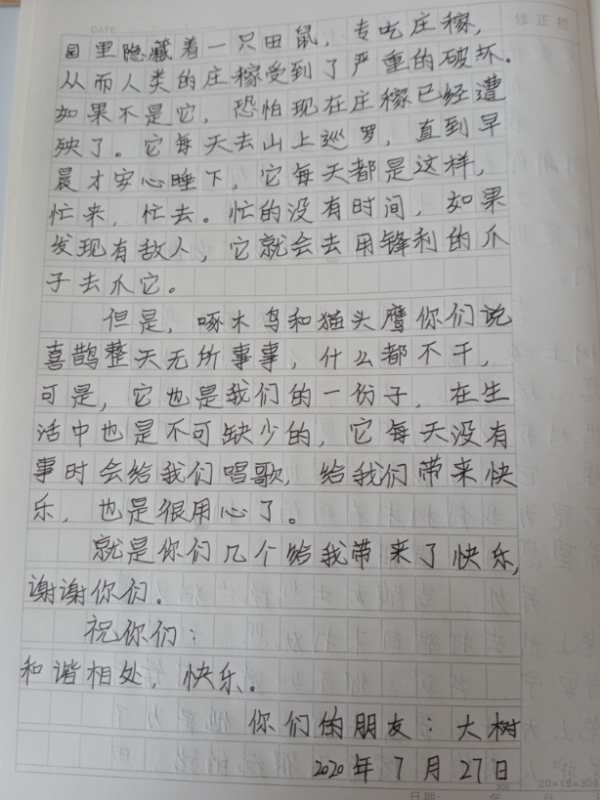 DATE
修正栏
园里隐藏着一只田鼠，专吃庄稼，
从而人类的庄稼受到了严重的破坏.
如果不是它，恐怕现在庄稼已经遭
殃了。它每天去山上巡罗，直到早
晨才安心睡下，它每天都是这样，
忙来，忙去。忙的没有时间，如果
发现有敌人，它就会去用锋利的爪
子去爪它。
但是，啄木鸟和猫头鹰你们说
喜鹊整天无所事事，什么都不干，
可是，它也是我们的一份子，在生
活中也是不可缺少的，它每天没有
事时会给我们唱歌，给我们带来快
乐，也是很用心了。
就是你们几个给我带来了快乐，
谢谢你们.
祝你们：
和谐相处，快乐.
你们的朋友：大树
2020年7月27日
日期